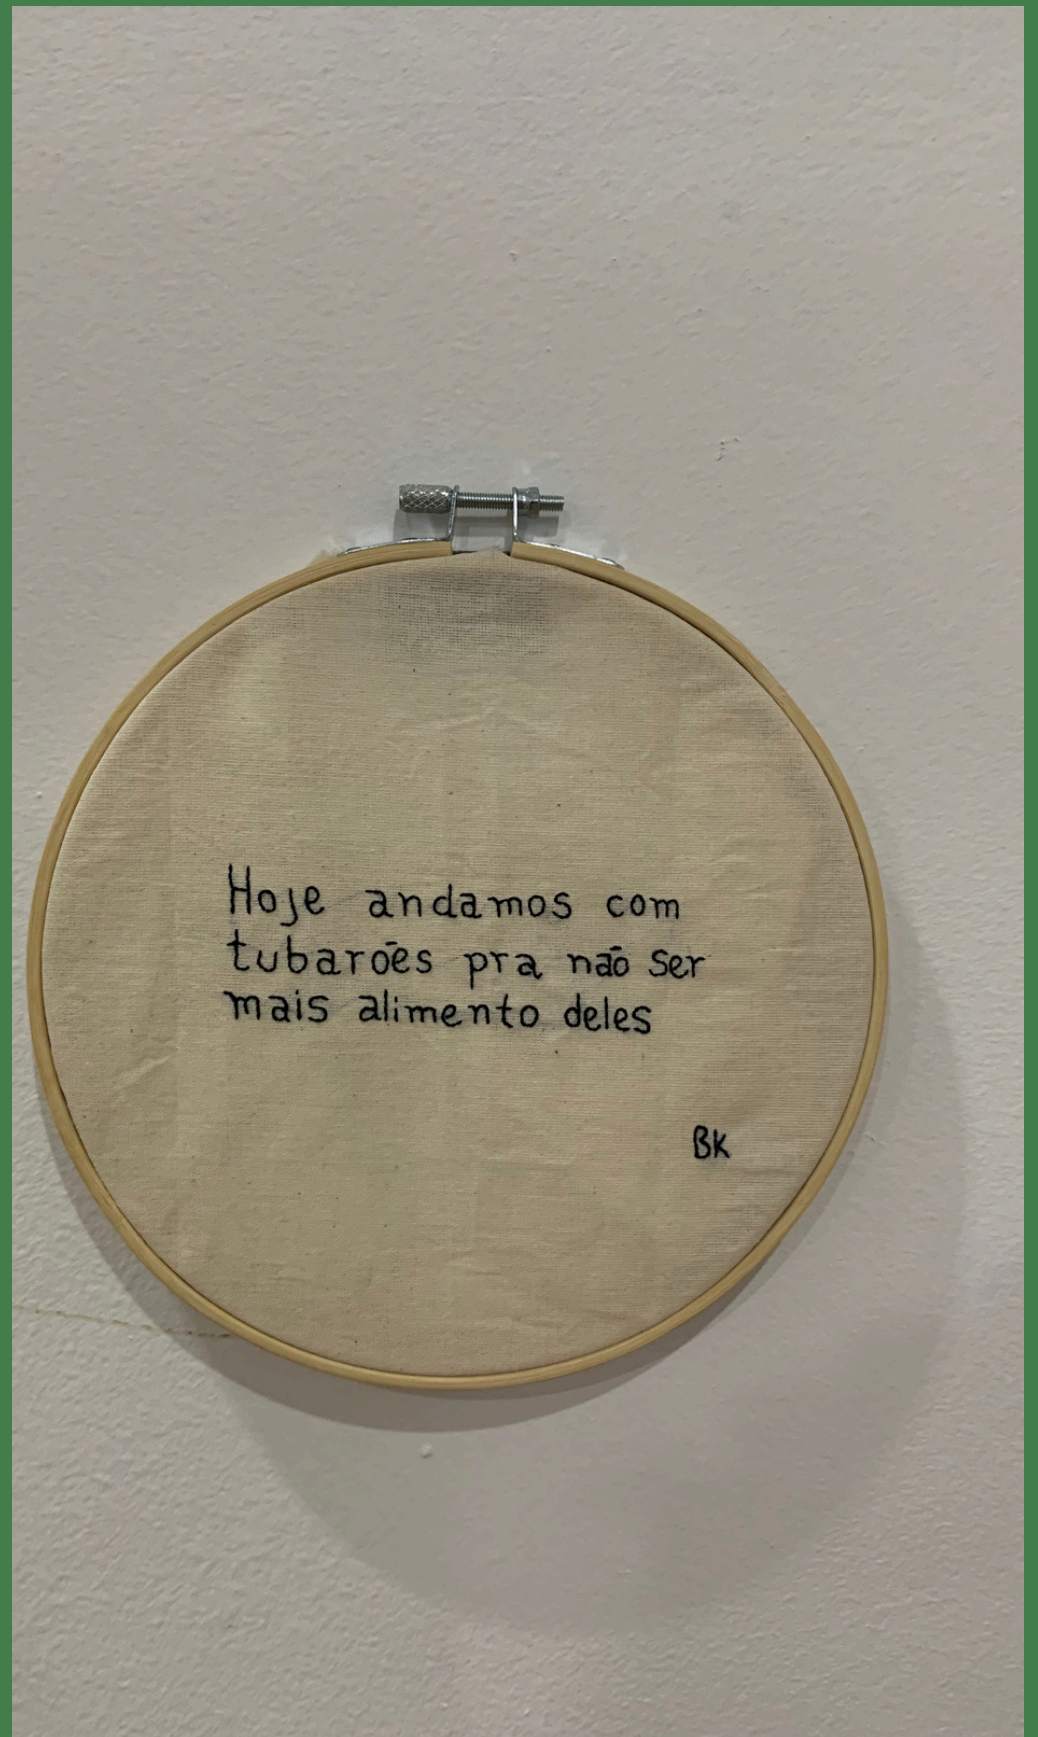 Hoje andamos com
tubarões pra não ser
mais alimento deles
BK